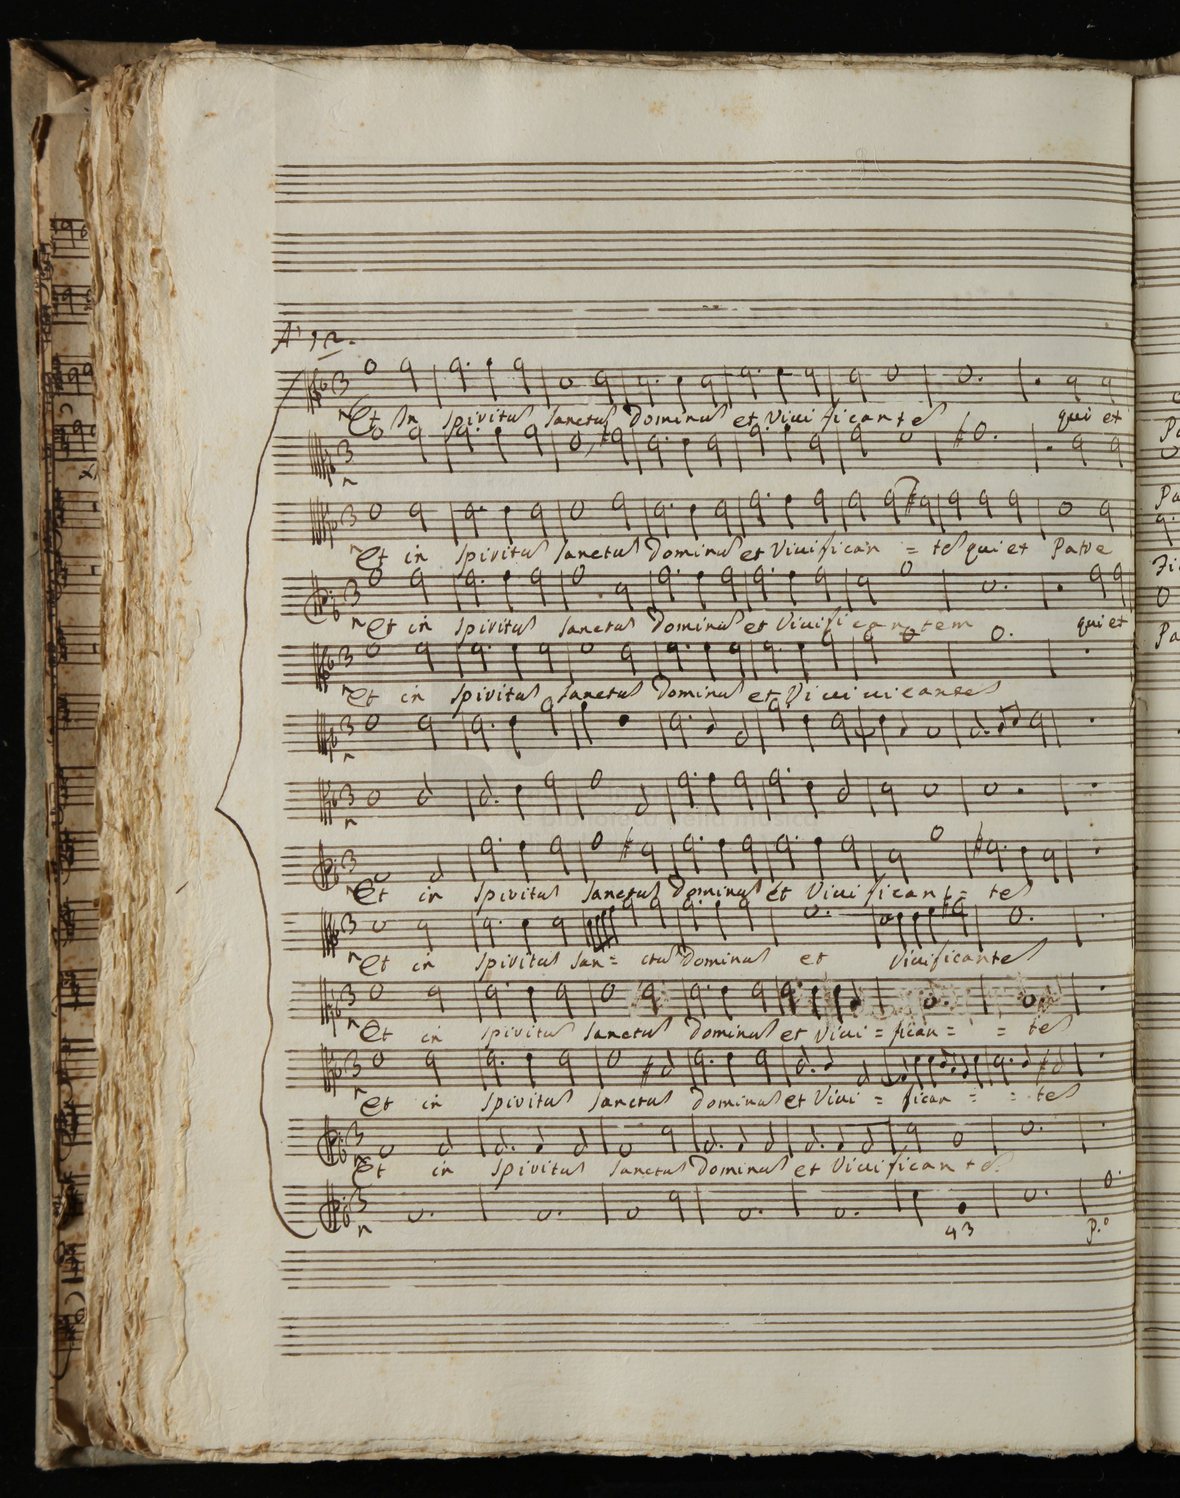 A' 12.
Et In spiritus sanctus Dominus et Viuificantes qui et
Et in spiritus sanctus Dominus et Viuifican = tes qui et Patre
Et in spiritus sanctus Dominus et Viuificantem qui et
Et in spiritus sanctus Dominus et Viuiuicantes
Et in spiritus sanctus Dominus et Viuificant = tes
Et in spiritus san = ctus Dominus et viuificantes
Et in spiritus sanctus Dominus et Viui = fican = = tes
Et in spiritus sanctus Dominus et Viui = fican = = tes
Et in spiritus sanctus Dominus et Viuificantes
43 p.o